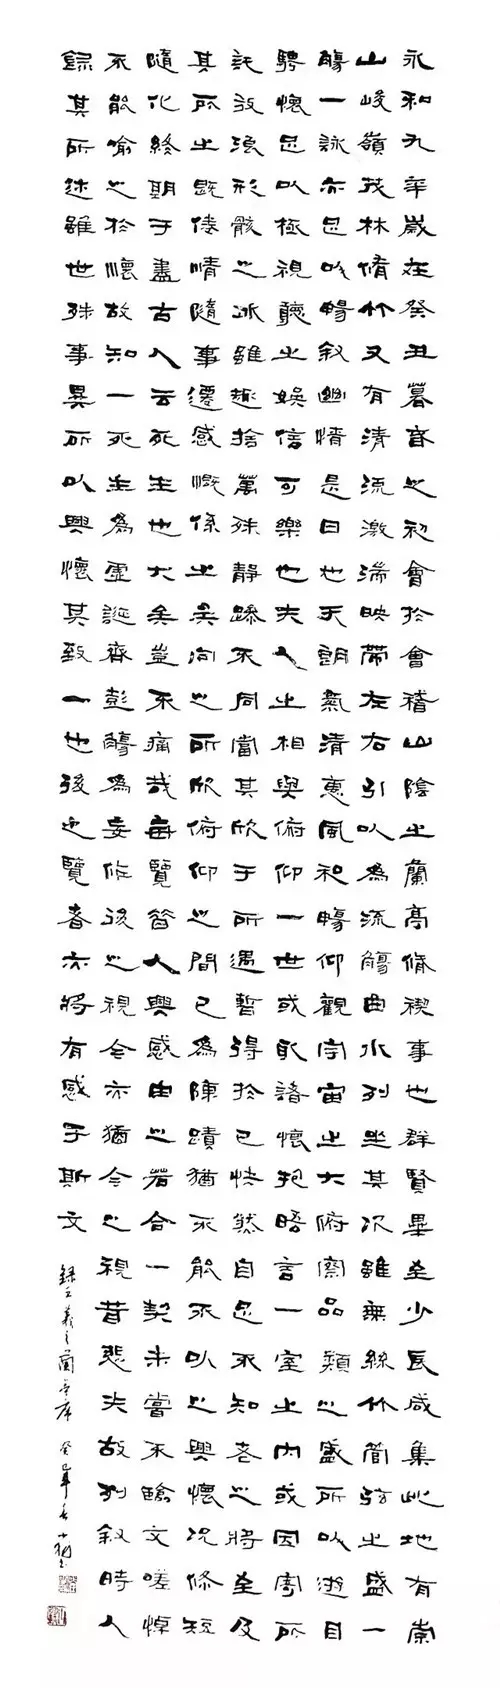 永和九年歲在癸丑暮春之初會於會稽山陰之蘭亭脩禊事也群賢畢至少長咸集此地有崇
山峻嶺茂林脩竹又有清流激湍映帶左右引以為流觴曲水列坐其次雖無絲竹管弦之盛一
觴一詠亦足以暢叙幽情是日也天朗氣清惠風和暢仰觀宇宙之大俯察品類之盛所以遊目
騁懷足以極視聽之娛信可樂也夫人之相與俯仰一世或取諸懷抱晤言一室之內或因寄所
託放浪形骸之外雖趣捨萬殊靜躁不同當其欣于所遇暫得於己快然自足不知老之將至及
其所之既倦情隨事遷感慨係之矣向之所欣俯仰之間已為陳蹟猶不能不以之興懷況脩短
隨化終期于盡古人云死生也大矣豈不痛哉每覽昔人興感由之若合一契未嘗不臨文嗟悼
不能喻之於懷故知一死生為虛誕齊彭殤為妄作後之視今亦猶今之視昔悲夫故列叙時人
錄其所述雖世殊事異所以興懷其致一也後之覽者亦將有感于斯文
錄王羲之蘭亭序 癸巳年春